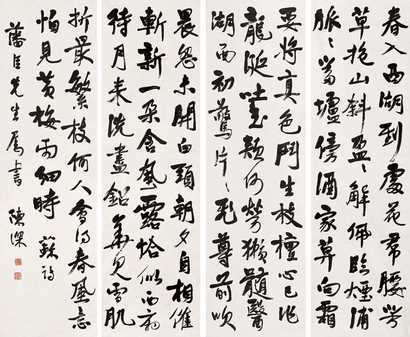 春入西湖到處花帬腰芳
草抱山斜盈盈解佩臨煙浦
脈脈當壚傍酒家莫向霜
要將真色鬥生枝檀心已作
龍涎吐玉頰何勞獺髓醫
湖面初驚片片飛尊前吹
晨怨未開白頭朝夕自相催
斬新一朵含風露恰似西廂
待月來洗盡鉛華見雪肌
折最繁枝何人會得春風意
怕見黃梅雨細時 蘇詩
藩臣先生屬書 陳